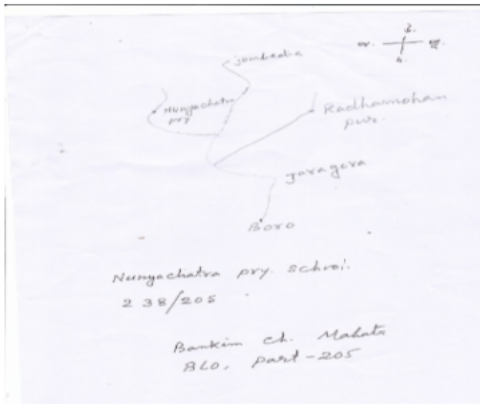 jambedia
Nunyachatra
pry
Radhamohan
pur.
jaragora
Boro
Nunyachatra pry. School.
238/205
Bankim Ch. Mahata
BLO, Part-205